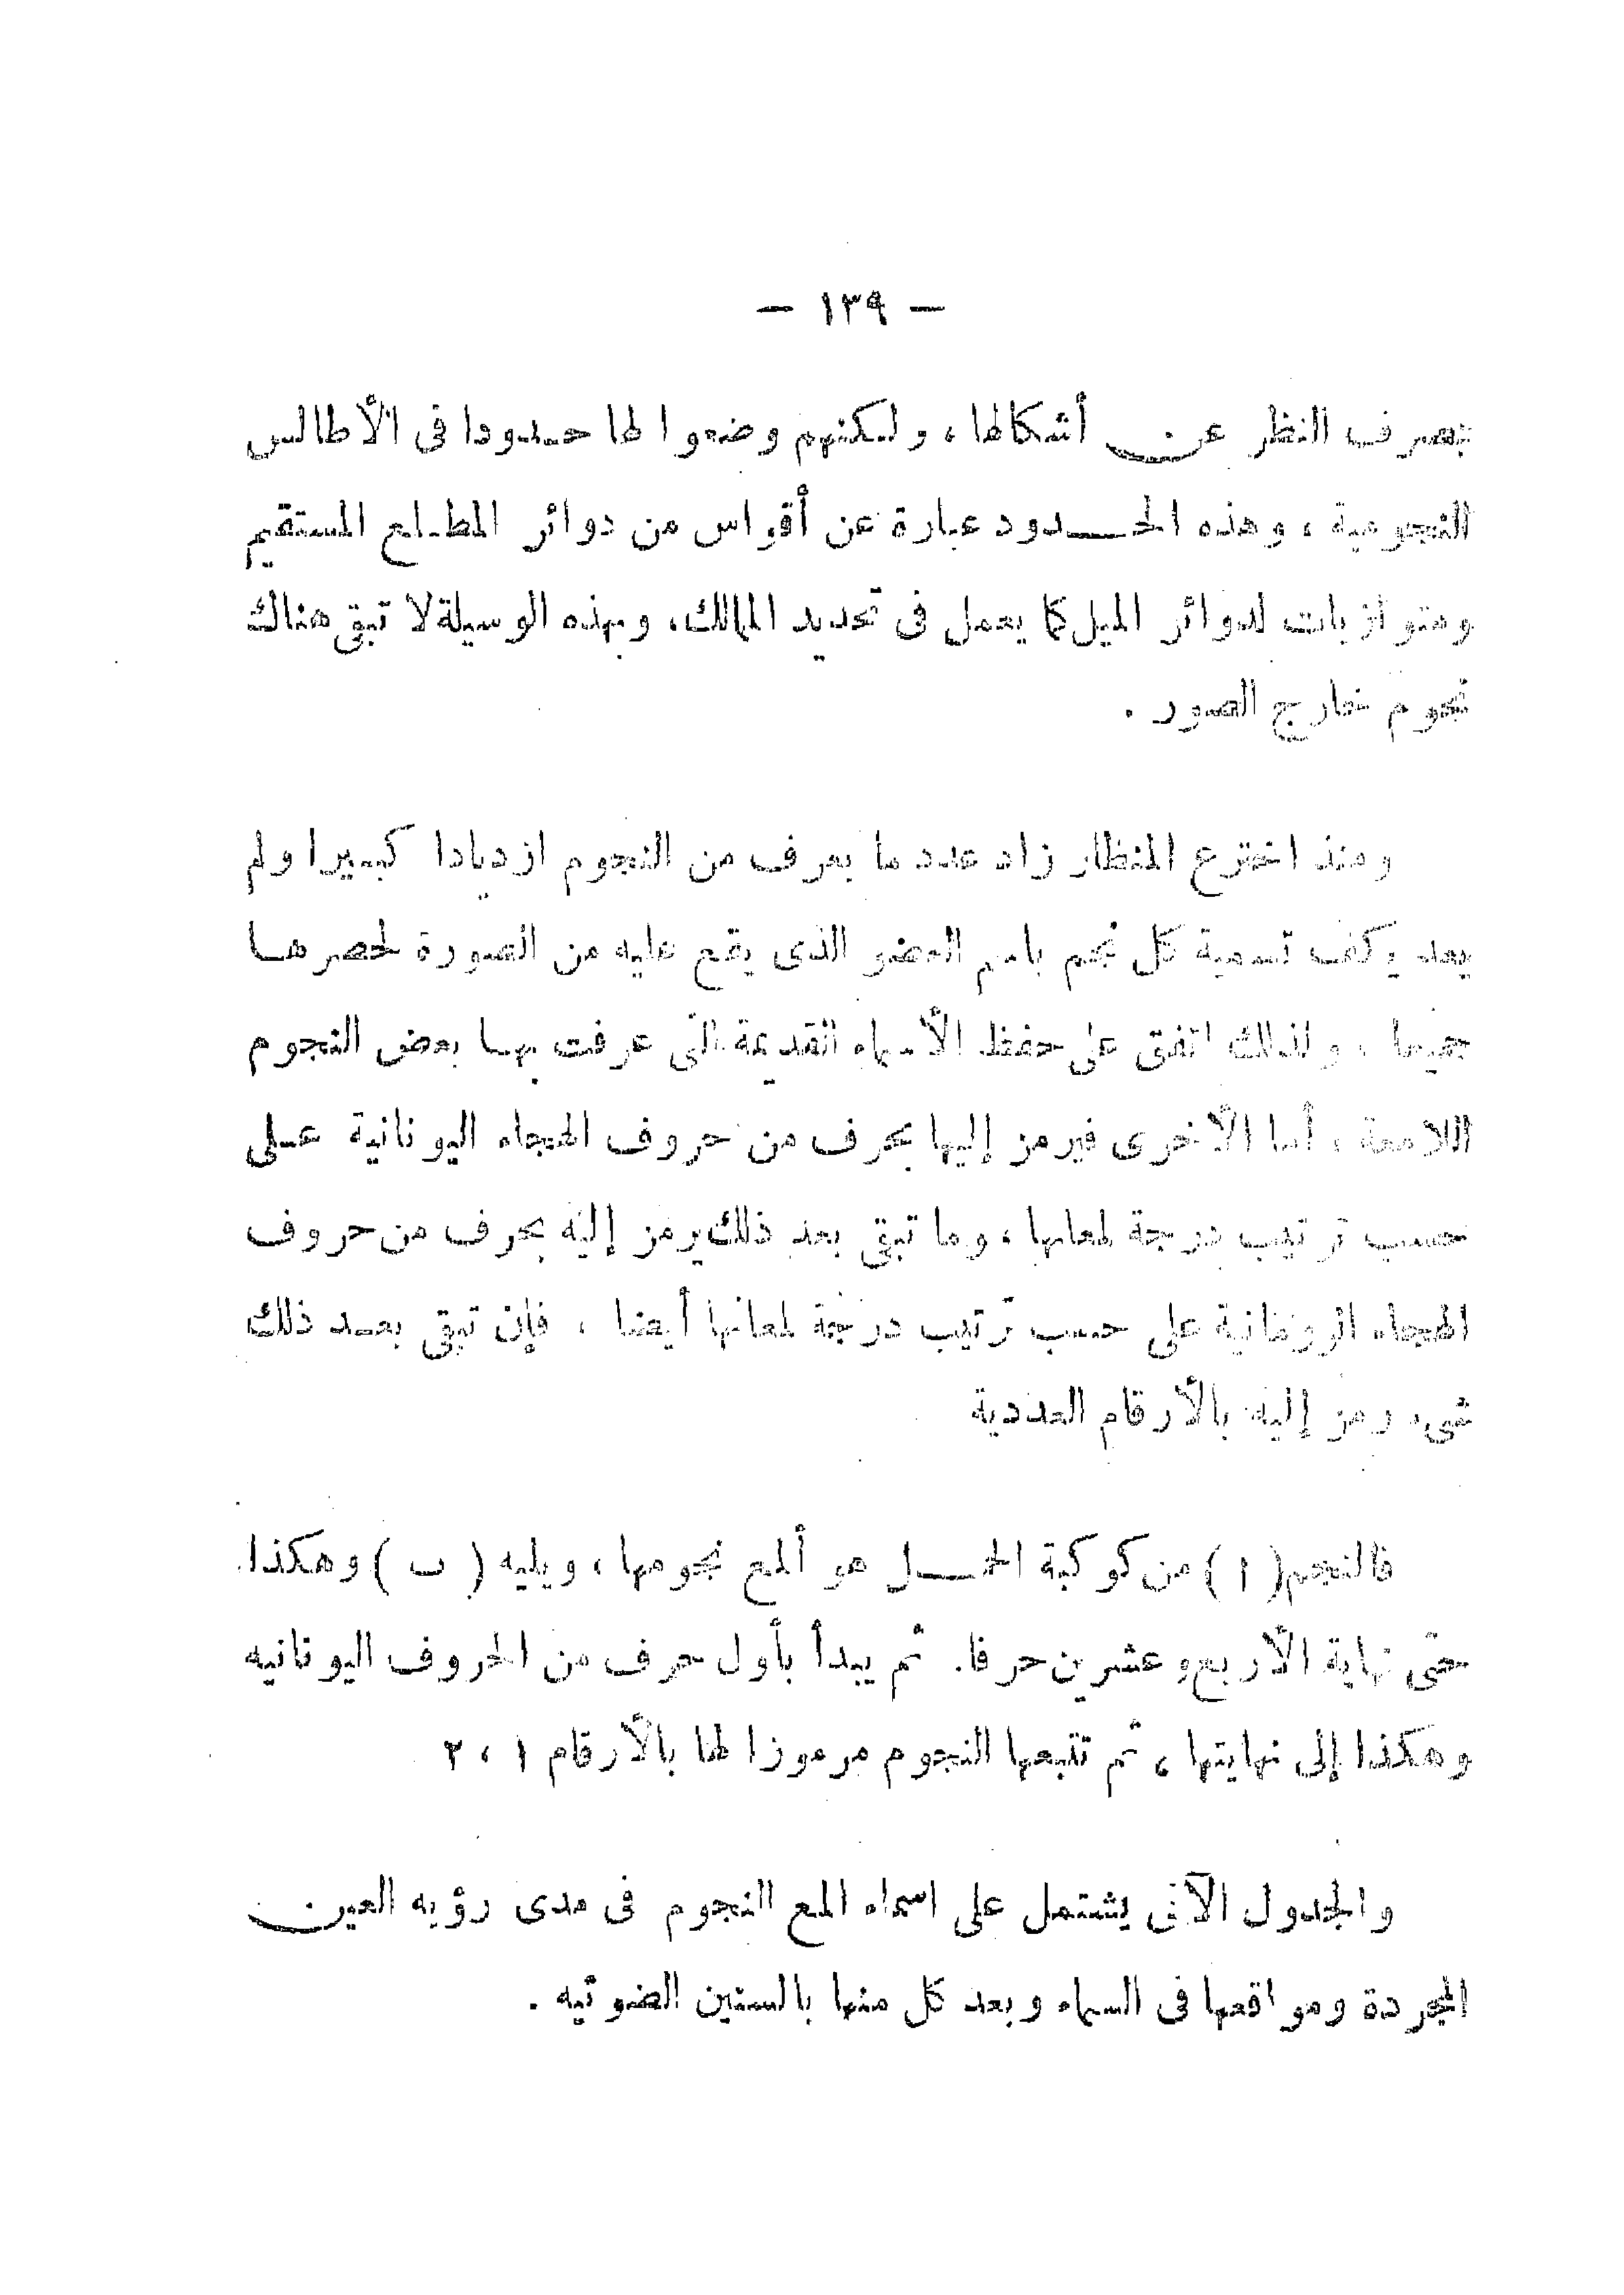 — ١٣٩ —
بصرف النظر عن أشكالها ، ولكنهم وضعوا لها حدودا فى الأطالس
النجومية ، وهذه الحدود عبارة عن أقواس من دوائر المطلع المستقيم
ومتوازيات لدوائر الميل كما يعمل فى تحديد الممالك، وبهذه الوسيلة لا تبقى هناك
نجوم خارج الصور .
ومنذ اخترع المنظار زاد عدد ما يعرف من النجوم ازديادا كبيرا ولم
يعد يكفى تسمية كل نجم باسم العضو الذى يقع عليه من الصورة لحصرها
جميعا ، ولذلك اتفق على حفظ الأسماء القديمة التى عرفت بها بعض النجوم
اللامعة ، أما الأخرى فيرمز إليها بحرف من حروف الهجاء اليونانية على
حسب ترتيب درجة لمعانها ، وما تبقى بعد ذلك يرمز إليه بحرف من حروف
الهجاء الرومانية على حسب ترتيب درجة لمعانها أيضا ، فإن تبقى بعد ذلك
شىء رمز إليه بالأرقام العددية
فالنجم ( ا ) من كوكبة الحمل هو ألمع نجومها ، ويليه ( ب ) وهكذا
حتى نهاية الأربع وعشرين حرفا. ثم يبدأ بأول حرف من الحروف اليونانيه
وهكذا إلى نهايتها ، ثم تتبعها النجوم مرموزا لها بالأرقام ١ ، ٢
والجدول الآتى يشتمل على اسماء المع النجوم فى مدى رؤيه العين
المجردة ومواقعها فى السماء وبعد كل منها بالسنين الضوئيه .